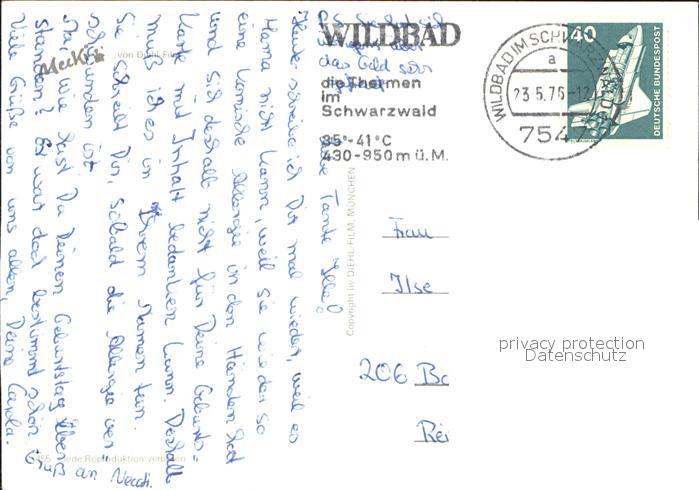 WILDBAD
die Thermen
im
Schwarzwald
35°-41°C
430-950 m ü.M.
WILDBAD IM SCHWARZWALD
a
23.5.76-12
7547
40
DEUTSCHE BUNDESPOST
Mecki
von Diehl-Film
Copyright by DIEHL-FILM, MÜNCHEN
465 Jede Reproduktion verboten
Liebe Tante Ilse!
Heute schreibe ich Dir mal wieder, weil es
Mama nicht kann, weil sie wieder so
eine komische Allergie in den Händen hat
und sich deshalb nicht für Deine Geburts-
karte mit Inhalt bedanken kann. Deshalb
muß ich es in ihrem Namen tun.
Sie schreibt Dir, sobald die Allergie ver-
schwunden ist.
Na, wie hast Du Deinen Geburtstag über-
standen? Es war doch bestimmt schön.
Viele Grüße von uns allen, Deine Carola.
Gruß an
das Geld sehr
Frau
Ilse
206 Ba
Rei
privacy protection
Datenschutz